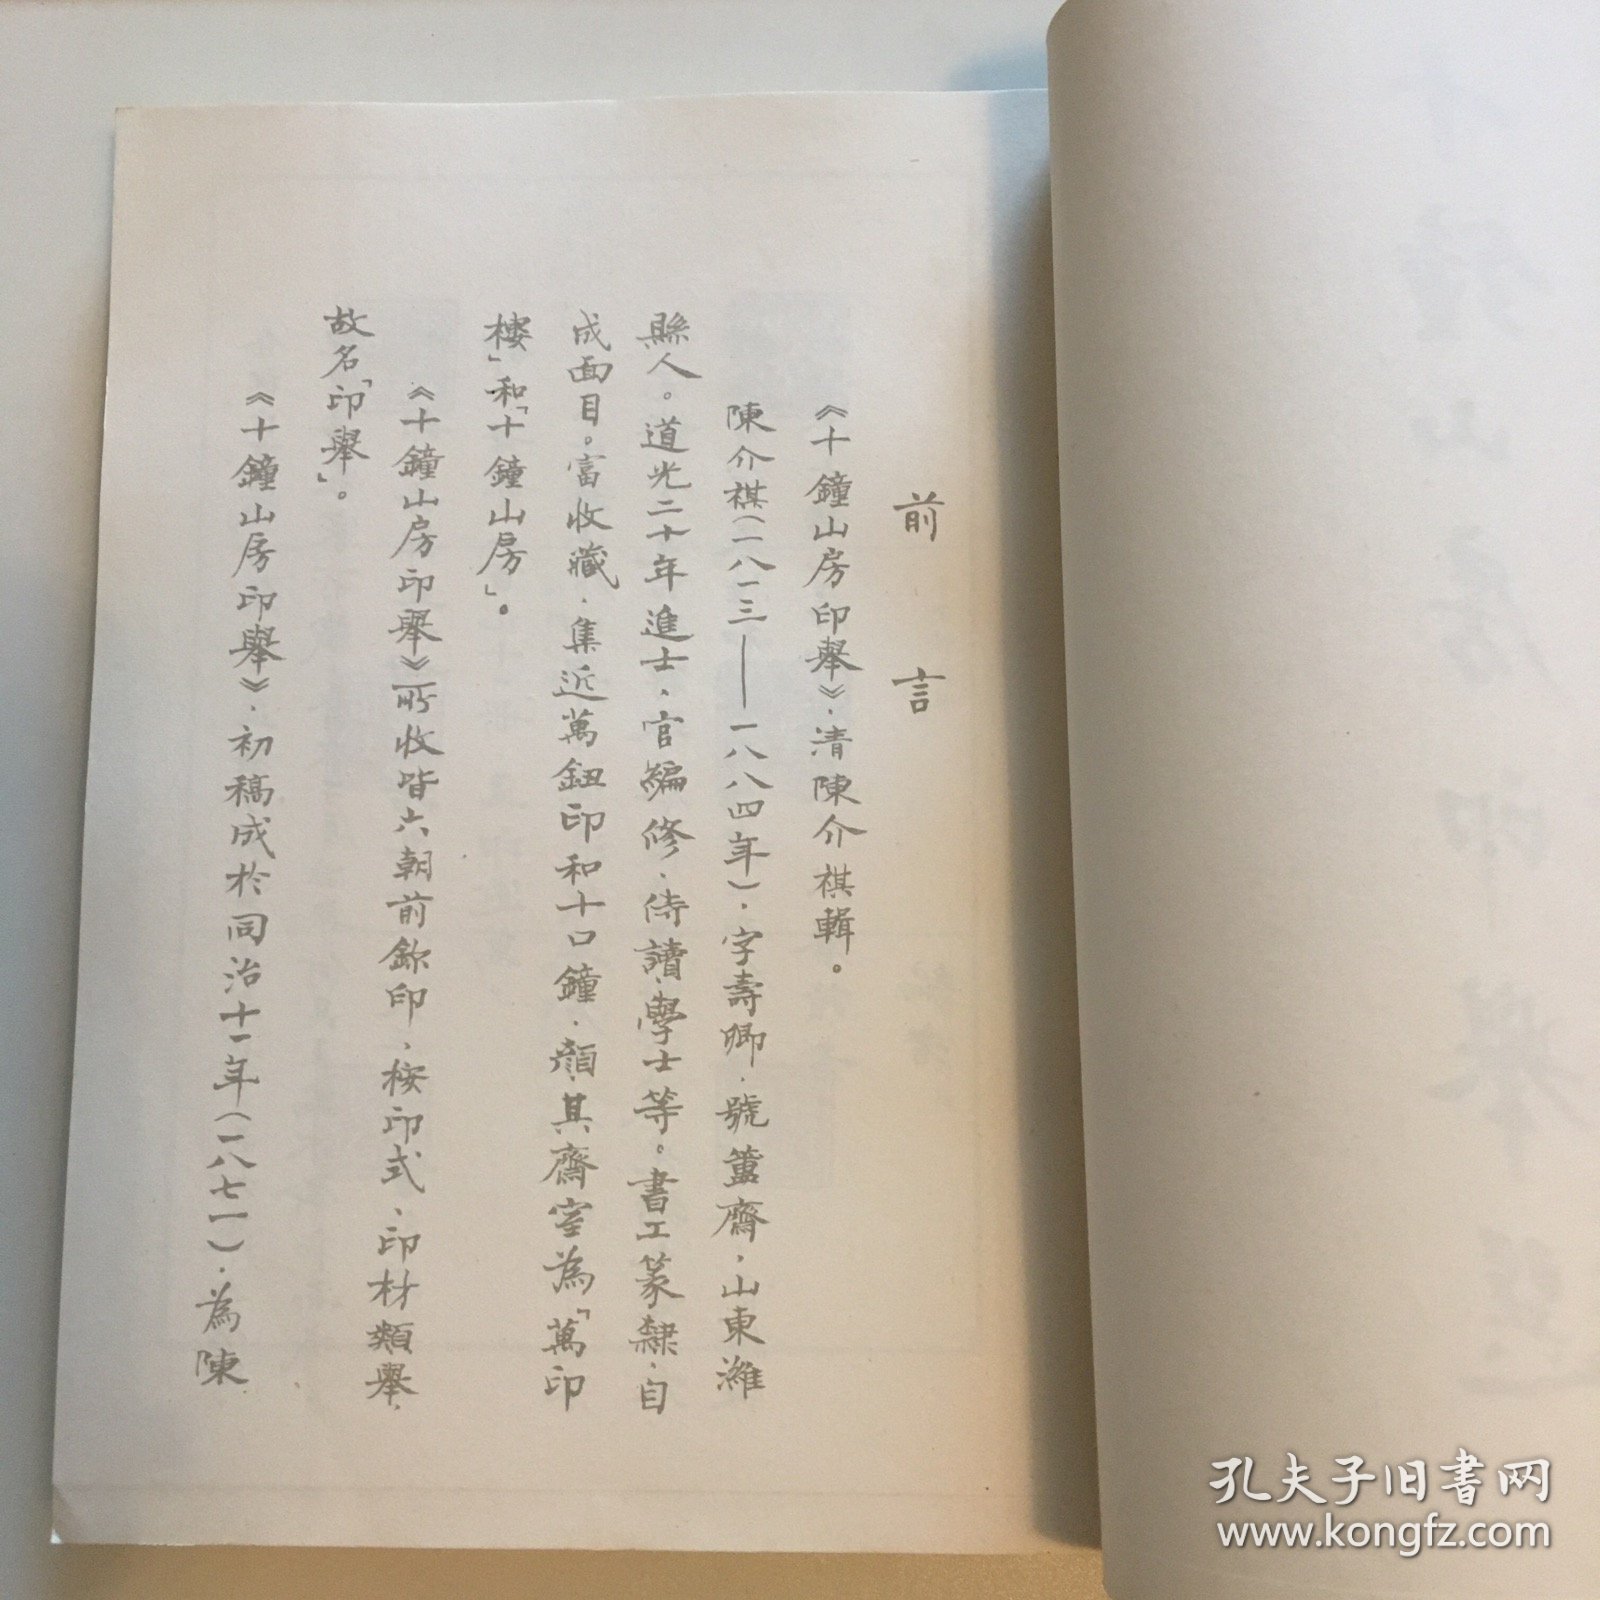 前言
《十鐘山房印舉》，清陳介祺輯。
陳介祺（一八一三——一八八四年），字壽卿，號簠齋，山東濰
縣人。道光二十年進士，官編修、侍讀學士等。書工篆隸，自
成面目。富收藏，集近萬鈕印和十口鐘，顏其齋室為「萬印
樓」和「十鐘山房」。
《十鐘山房印舉》所收皆六朝前鉨印，按印式、印材類舉，
故名「印舉」。
《十鐘山房印舉》，初稿成於同治十一年（一八七一），為陳
孔夫子旧书网
www.kongfz.com